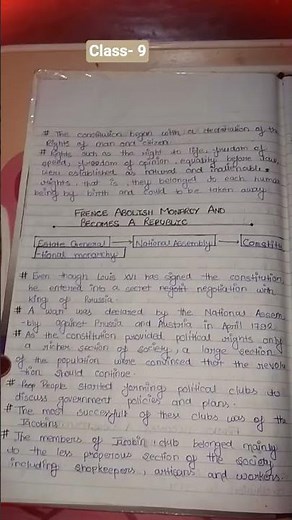 Class- 9
# The constitution began with a declaration of the
Rights of man and citizen.
# Rights such as the right to life, freedom of
speed, freedom of opinion, equality before law,
were established as natural and inalienable
rights, that is, they belonged to each human
being by birth and could to be taken away.
FRENCE ABOLISH MONARCY AND
BECOMES A REPUBLIC
Estate General → National Assembly → Constitu
-tional monarchy
# Even though Louis XVI has signed the constitution,
he entered into a secret negotiation with
king of Prussia
# A war was declared by the National Assem
-bly against Prussia and Austria in April 1792.
# As the constitution provided political rights only
a richer section of society, a large section
of the population were convinced that the revolu
-tion should continue
# People started forming political clubs to
discuss government policies and plans.
# The most successful of these clubs was of the
Jacobins
# The members of Jacobin club belonged mainly
to the less properous section of the society
including shopkeepers, artisans and workers.